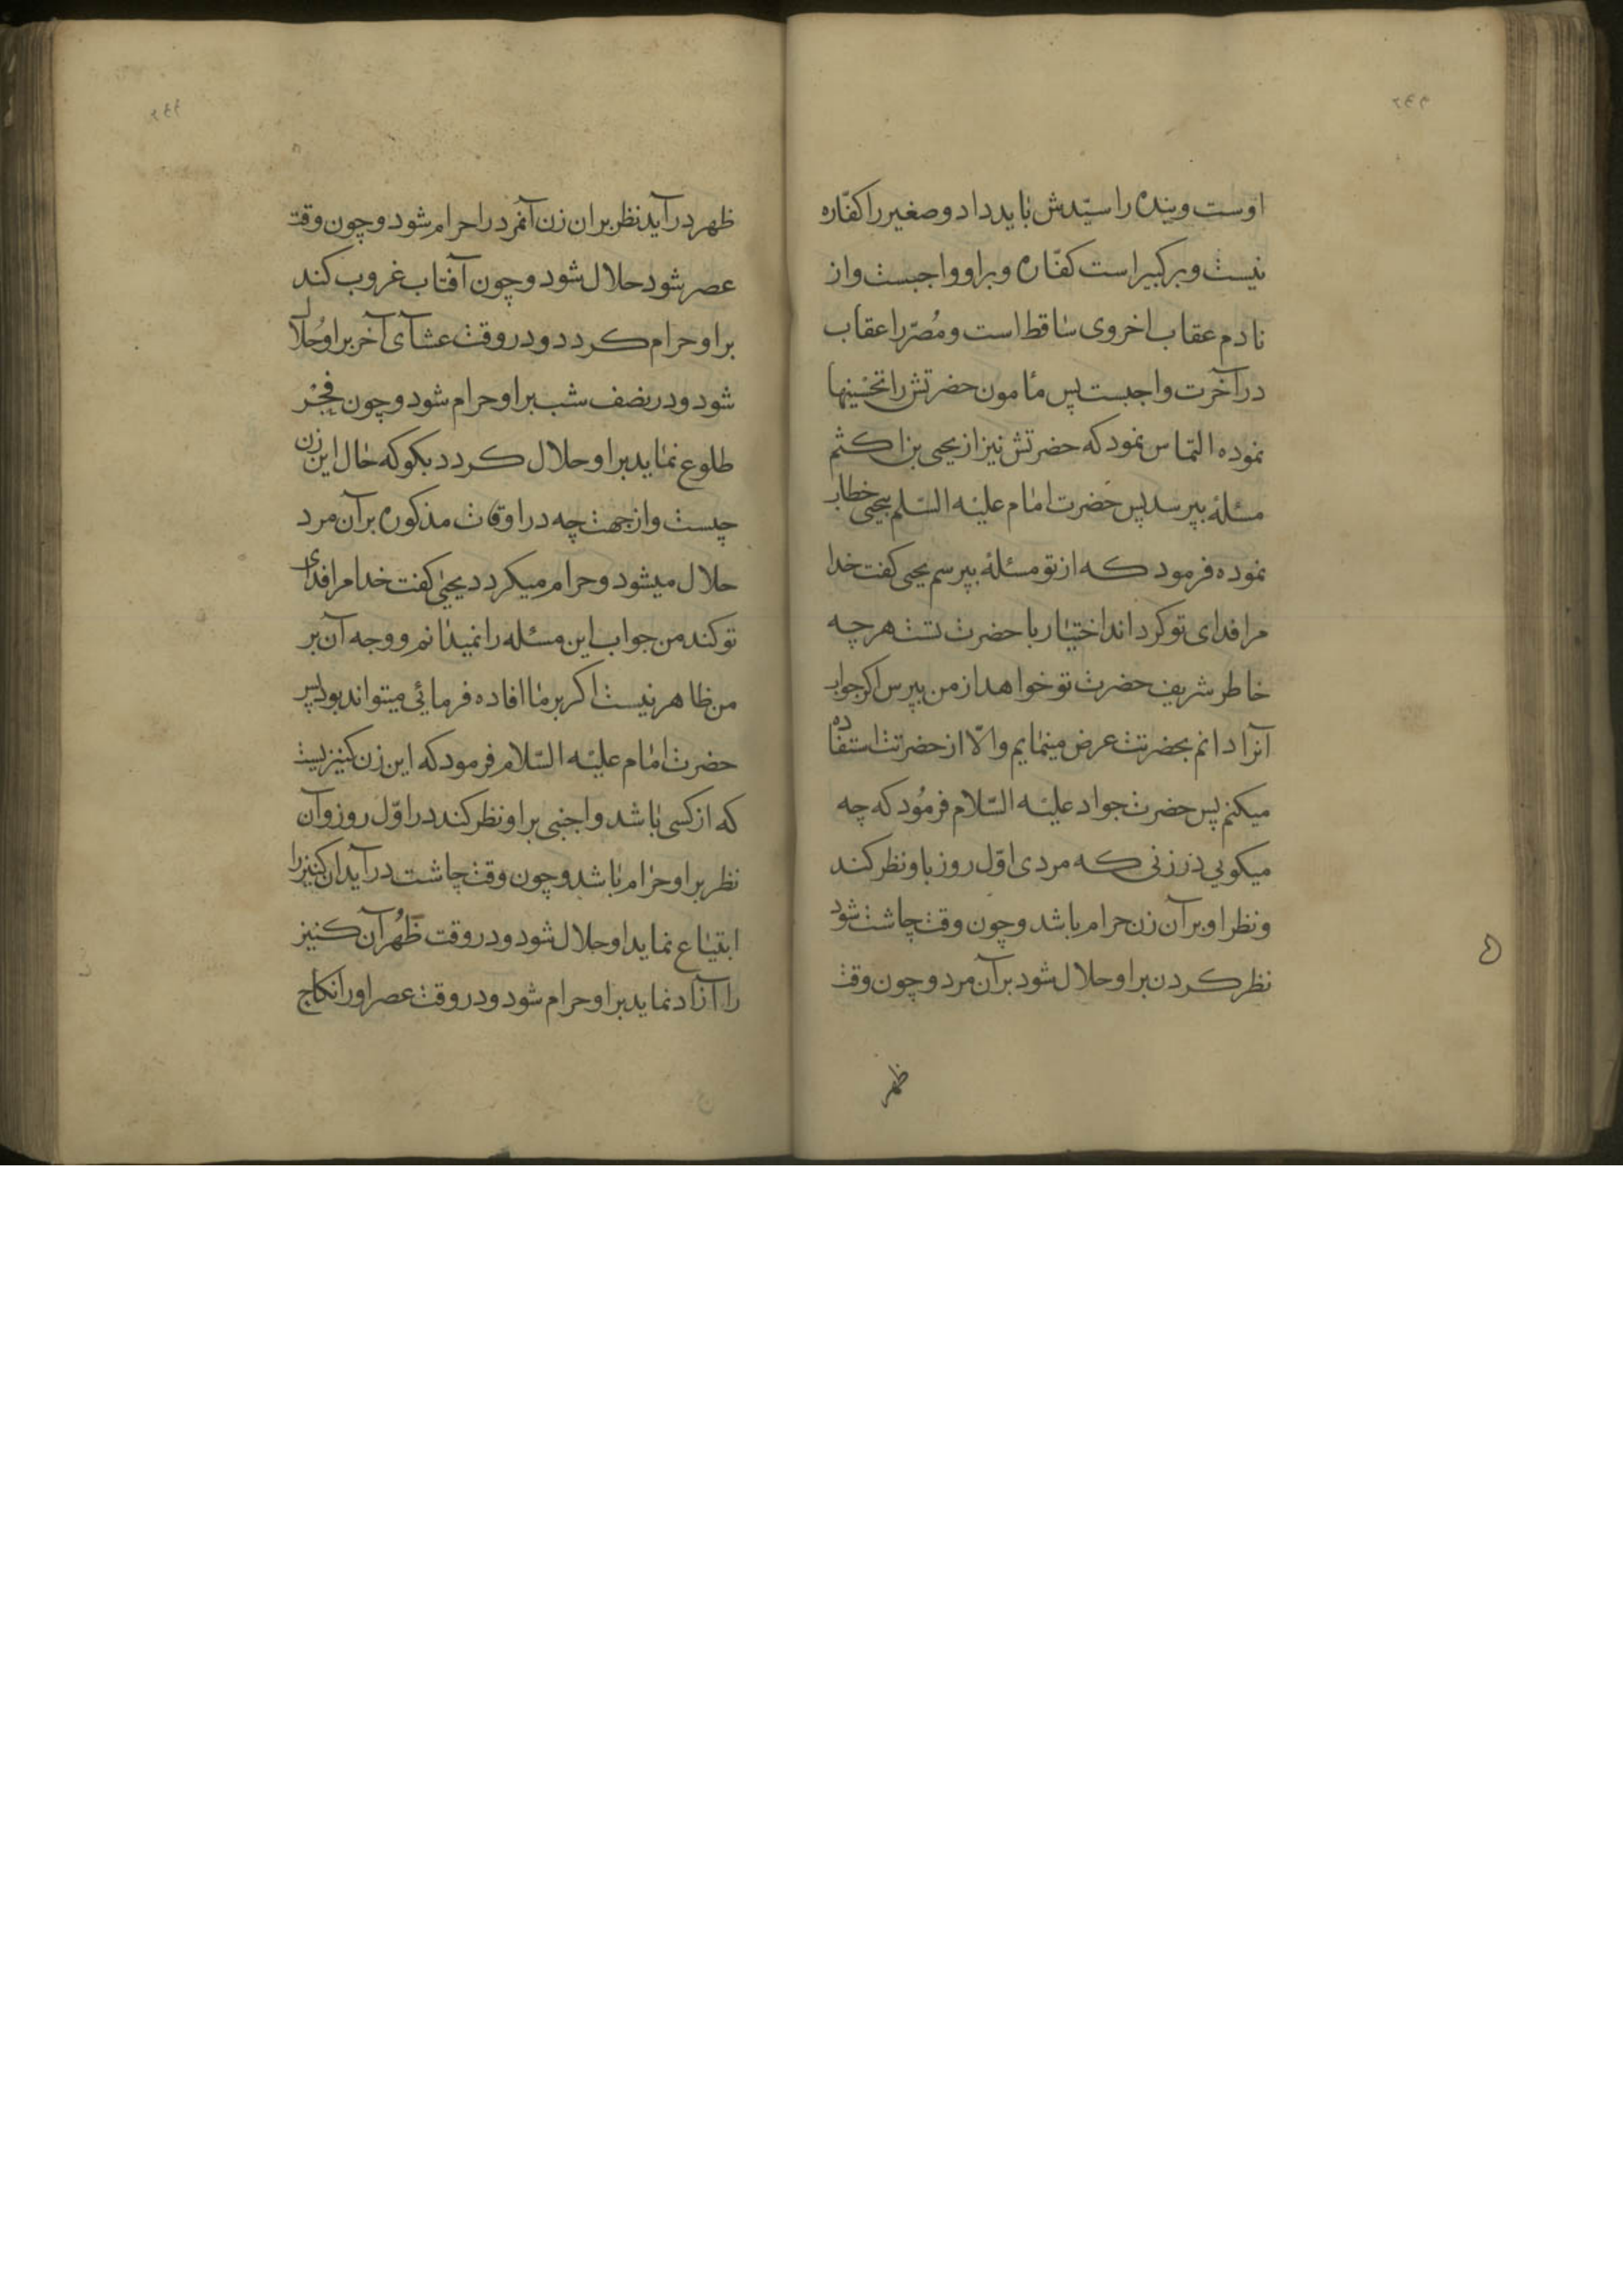 اوست و بنده را سیّدش باید داد و صغیر را کفّاره
نیست و بر کبیر است کفّاره و بر او واجبست و از
نادم عقاب اخروی ساقط است و مُصرّ را عقاب
در آخرت واجبست پس مأمون حضرتش را تحسینها
نموده التماس نمود که حضرتش نیز از یحیی بن اکثم
مسئلهٔ بپرسد پس حضرت امام علیه السّلم بیحیی خطاب
نموده فرمود که از تو مسئلهٔ بپرسم یحیی کفت خدا
مرا فدای تو کرداند اختیار با حضرت تست هر چه
خاطر شریف حضرت تو خواهد از من بپرس اکر جواب
آنرا دانم بحضرتت عرض مینمایم و الّا از حضرتت استفاده
میکنم پس حضرت جواد علیه السّلام فرمُود که چه
میکویی در زنی که مردی اوّل روز باو نظر کند
و نظر او بر آن زن حرام باشد و چون وقت چاشت شود
نظر کردن بر او حلال شود بر آن مرد و چون وقت
ظهر
ظهر درآید نظر بر ان زن آنمرد را حرام شود و چون وقت
عصر شود حلال شود و چون آفتاب غروب کند
بر او حرام کردد و در وقت عشآی آخر بر او حُلال
شود و در نصف شب بر او حرام شود و چون فَجْر
طلوع نماید بر او حلال کردد بکو که حال این زن
چیست و از جهت چه در اوقات مذکوره بر آن مرد
حلال میشود و حرام میکردد یحیی کفت خدا مرا فدای
تو کند من جواب این مسئله را نمیدانم و وجه آن بر
من ظاهر نیست اکر بر ما افاده فرمائی میتواند بود پس
حضرت امام علیه السّلام فرمود که این زن کنیزیست
که از کسی باشد و اجنبی بر او نظر کند در اوّل روز و آن
نظر بر او حرام باشد و چون وقت چاشت درآید ان کنیز را
ابتیاع نماید او حلال شود و در وقت ظُهر آن کنیز
را آزاد نماید بر او حرام شود و در وقت عصر او را نکاح